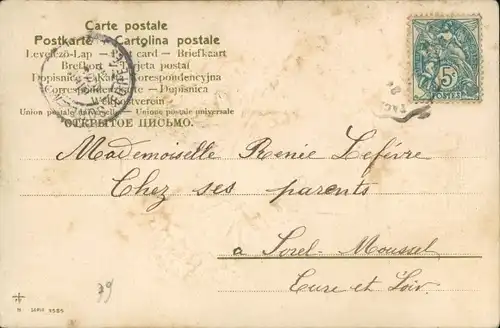 Carte postale
Postkarte — Cartolina postale
Levelező-Lap — Post card — Briefkaart
Brefkort — Tarjeta postal
Dopisnice — Karta Korespondencyjna
Correspondenzkarte — Dopisnica
Weltpostverein
Union postale universelle — Unione postale universale
ОТКРЫТОЕ ПИСЬМО.
5c
POSTES
Mademoiselle Renée Lefévre
Chez ses parents
a Sorel-Moussel
Eure et Loir.
39
SERIE